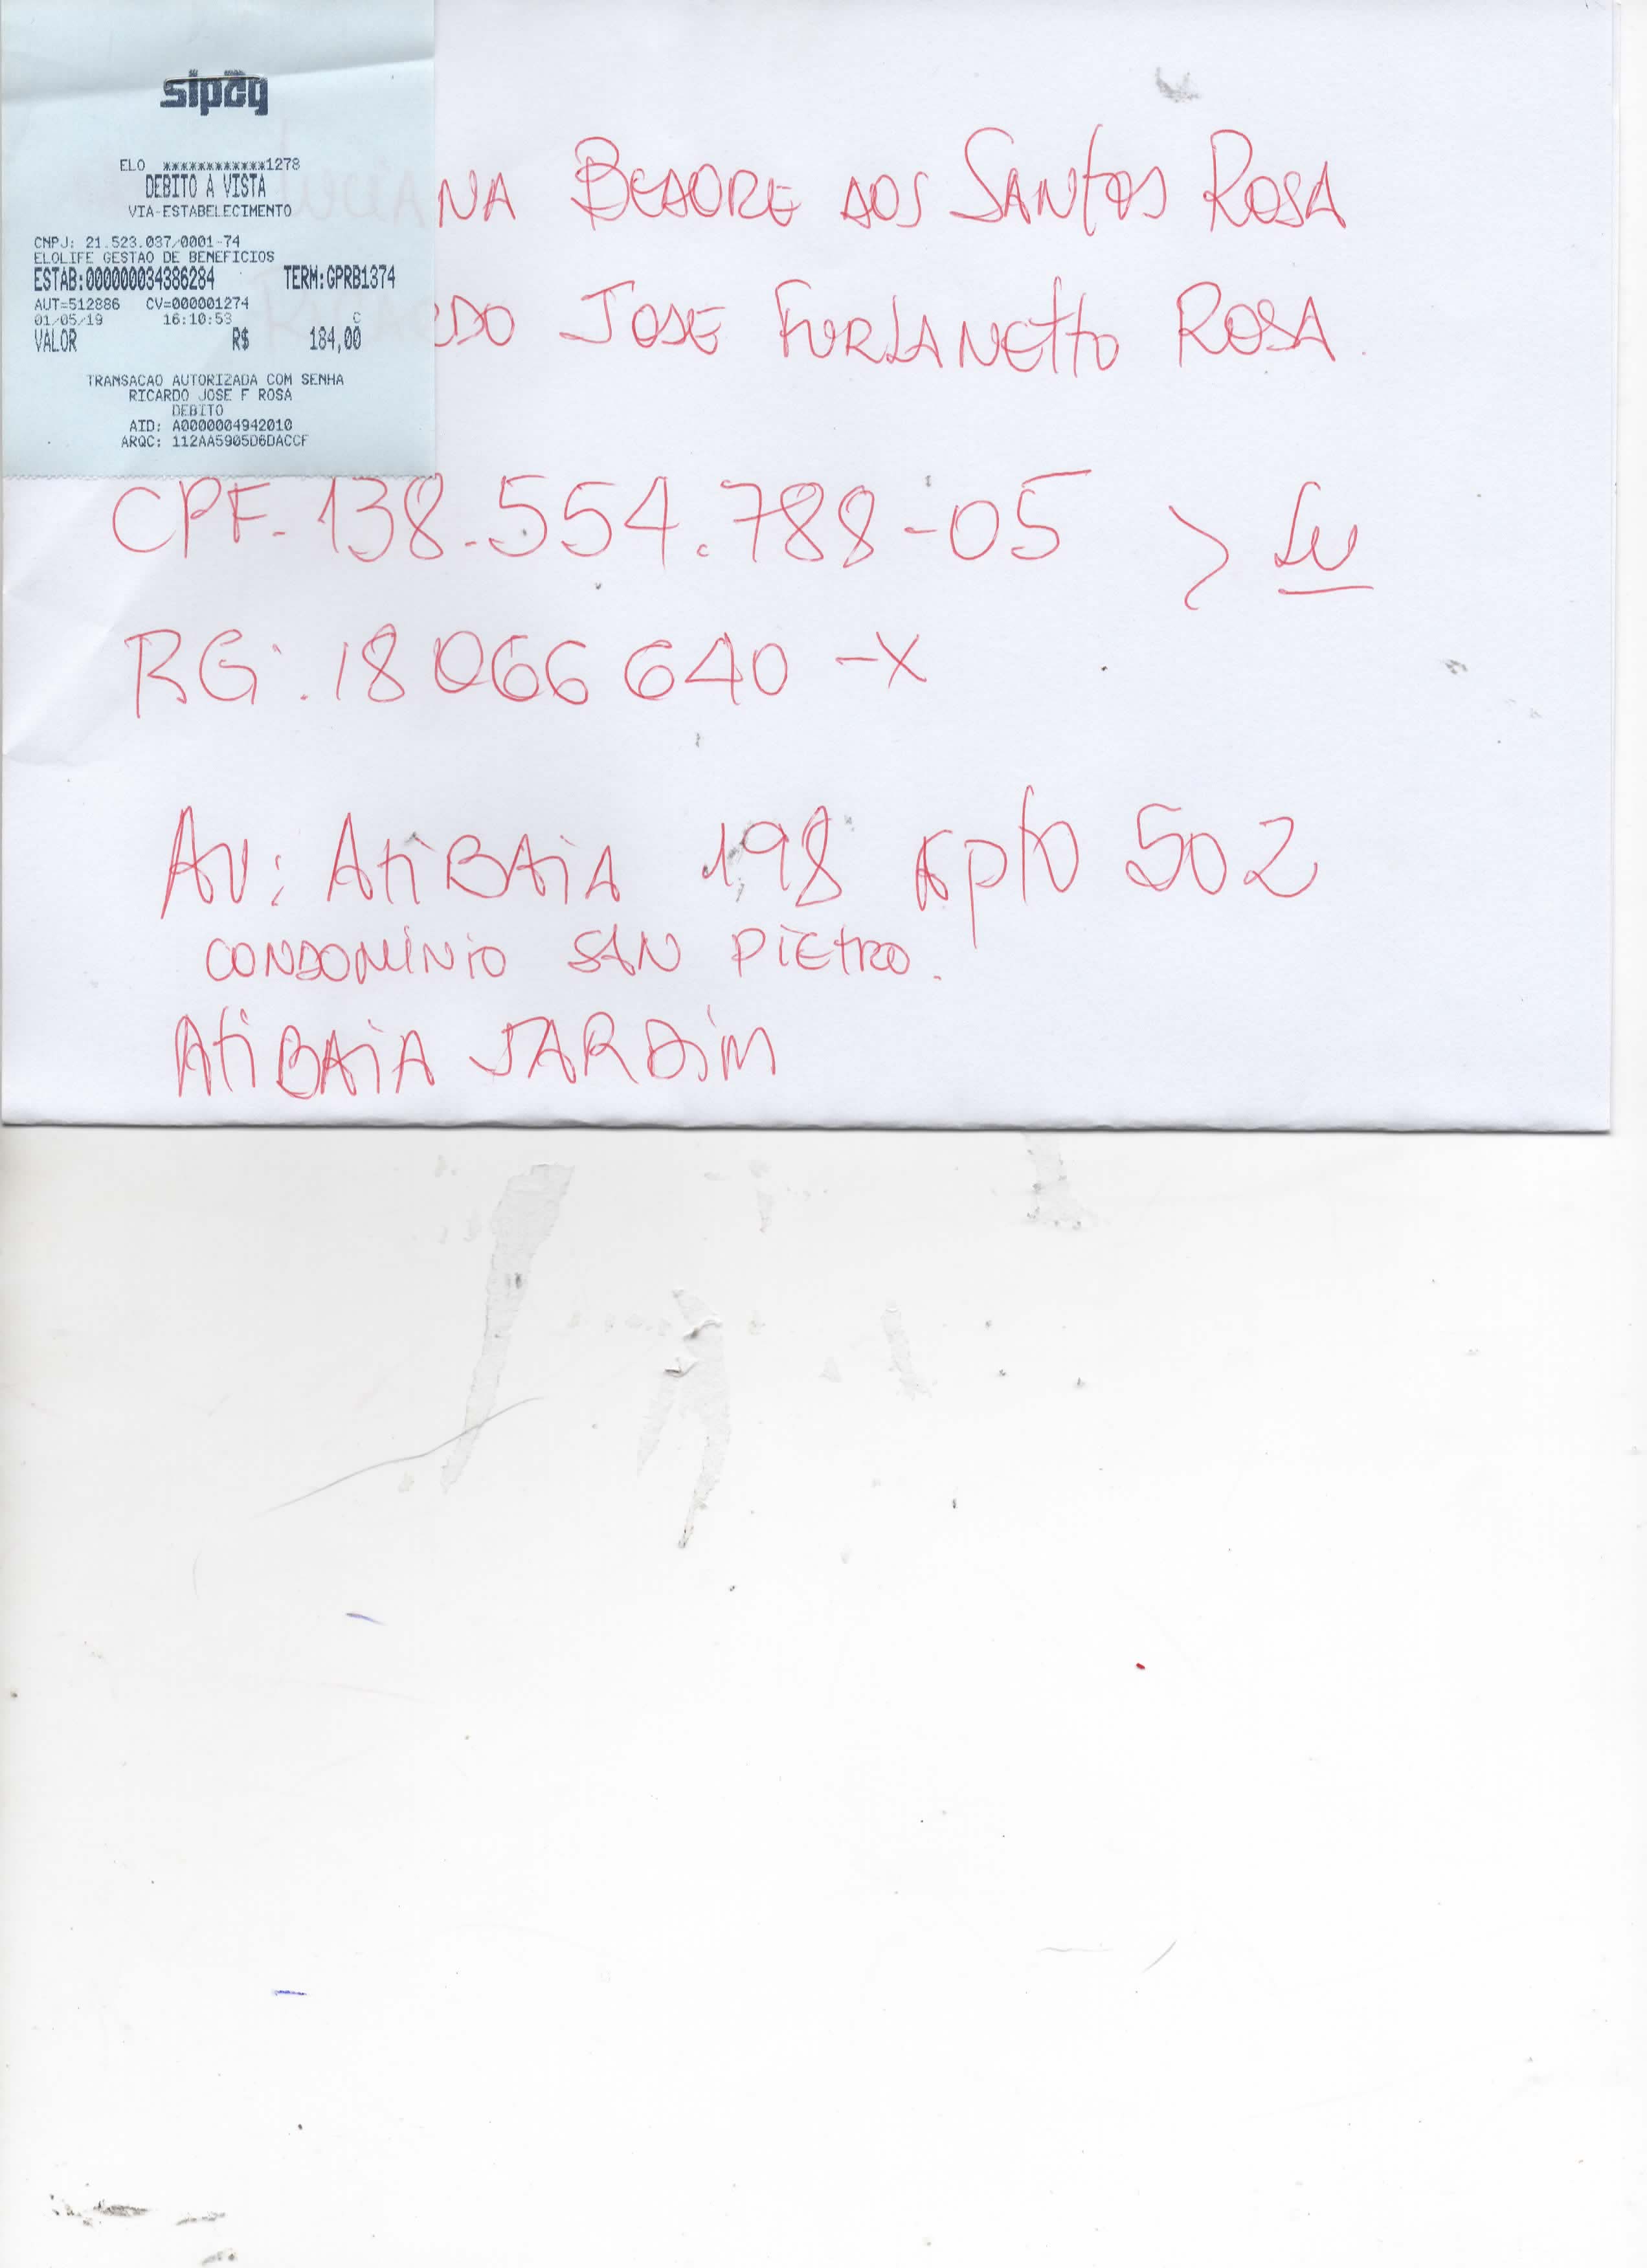 sipag
ELO ************1278
DEBITO A VISTA
VIA-ESTABELECIMENTO
CNPJ: 21.523.037/0001-74
ELOLIFE GESTAO DE BENEFICIOS
ESTAB:000000034386284 TERM:GPRB1374
AUT=512886 CV=000001274
01/05/19 16:10:53 C
VALOR R$ 184,00
TRANSACAO AUTORIZADA COM SENHA
RICARDO JOSE F ROSA
DEBITO
AID: A0000004942010
ARQC: 112AA5905D6DACCF
NA BEDORE DOS SANtOS ROSA
RDO JOSE FURLANEttO ROSA.
CPF-138.554.788-05 > Lu
RG: 18066640-X
AV: AtiBAiA 198 Apto 502
CONDOMÍNiO SAN PiEtRO.
AtiBAiA JARDiM